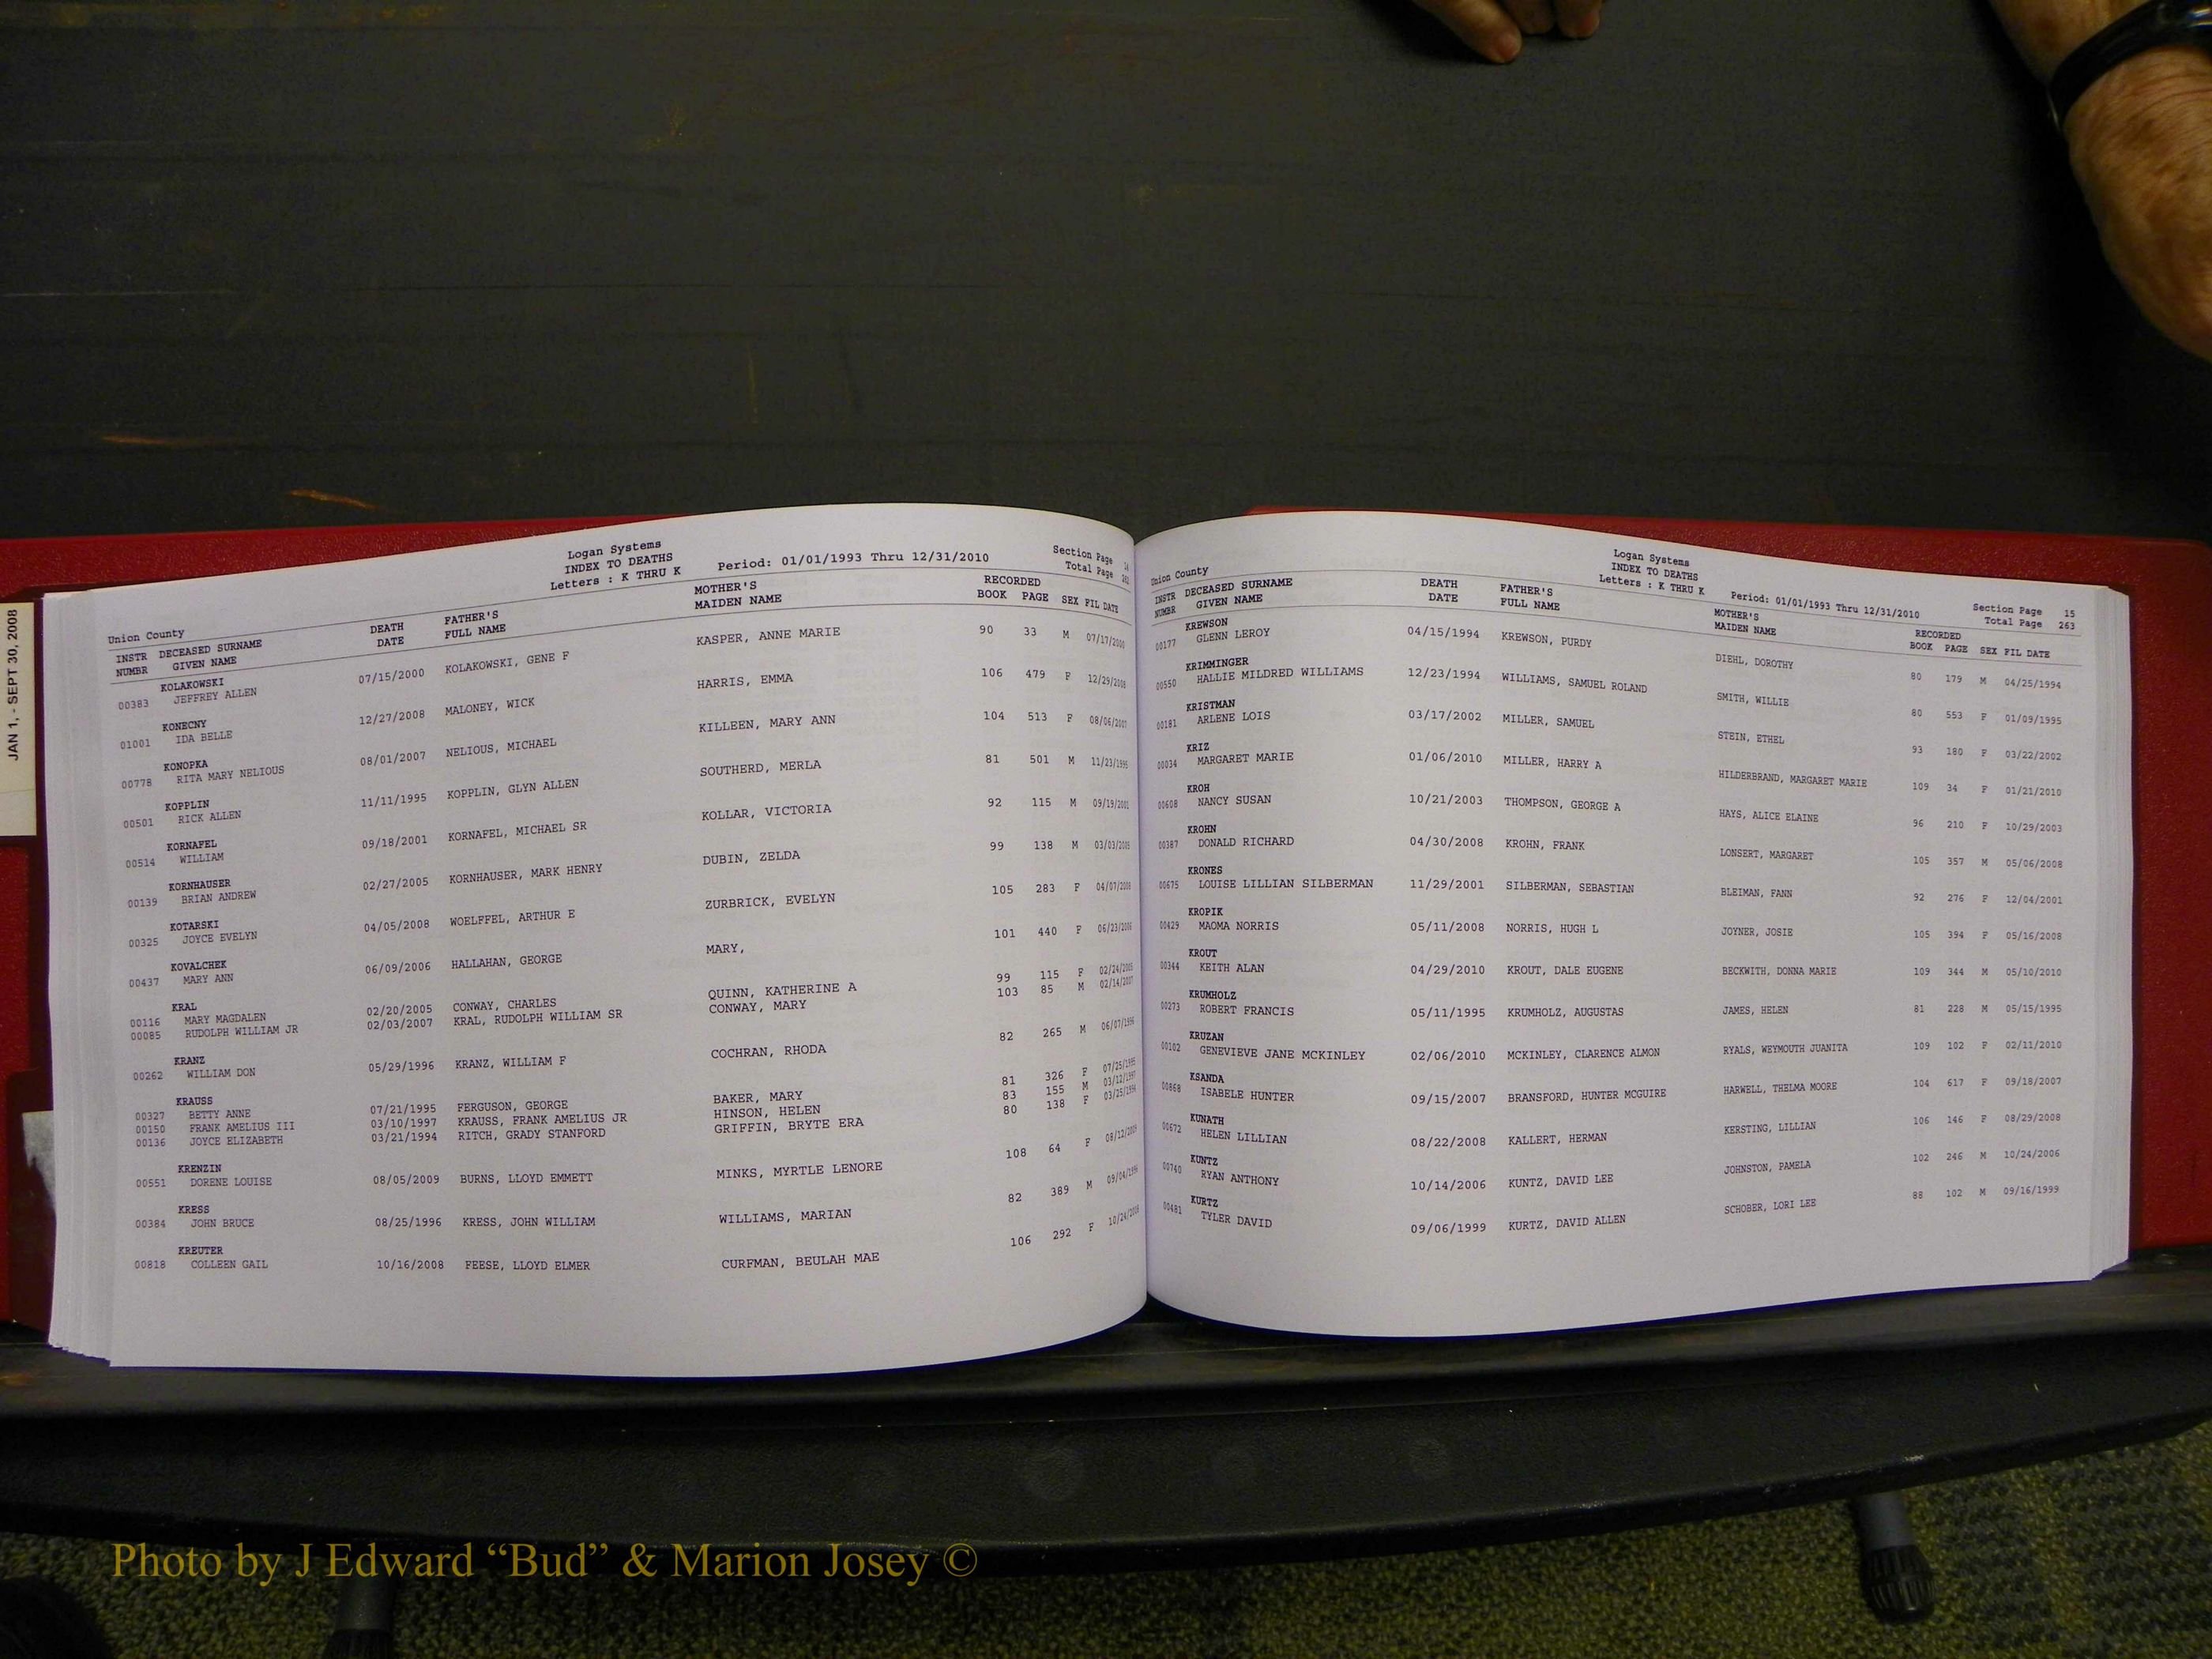 JAN 1, - SEPT 30, 2008
Logan Systems
INDEX TO DEATHS
Letters : K THRU K Period: 01/01/1993 Thru 12/31/2010
Section Page 14
Total Page 262
Union County
INSTR DECEASED SURNAME DEATH FATHER'S MOTHER'S RECORDED
NUMBR GIVEN NAME DATE FULL NAME MAIDEN NAME BOOK PAGE SEX FIL DATE
KOLAKOWSKI
00383 JEFFREY ALLEN 07/15/2000 KOLAKOWSKI, GENE F KASPER, ANNE MARIE 90 33 M 07/17/2000
KONECNY
01001 IDA BELLE 12/27/2008 MALONEY, WICK HARRIS, EMMA 106 479 F 12/29/2008
KONOPKA
00778 RITA MARY NELIOUS 08/01/2007 NELIOUS, MICHAEL KILLEEN, MARY ANN 104 513 F 08/06/2007
KOPPLIN
00501 RICK ALLEN 11/11/1995 KOPPLIN, GLYN ALLEN SOUTHERD, MERLA 81 501 M 11/23/1995
KORNAFEL
00514 WILLIAM 09/18/2001 KORNAFEL, MICHAEL SR KOLLAR, VICTORIA 92 115 M 09/19/2001
KORNHAUSER
00139 BRIAN ANDREW 02/27/2005 KORNHAUSER, MARK HENRY DUBIN, ZELDA 99 138 M 03/03/2005
KOTARSKI
00325 JOYCE EVELYN 04/05/2008 WOELFFEL, ARTHUR E ZURBRICK, EVELYN 105 283 F 04/07/2008
KOVALCHEK
00437 MARY ANN 06/09/2006 HALLAHAN, GEORGE MARY, 101 440 F 06/23/2006
KRAL
00116 MARY MAGDALEN 02/20/2005 CONWAY, CHARLES QUINN, KATHERINE A 99 115 F 02/24/2005
00085 RUDOLPH WILLIAM JR 02/03/2007 KRAL, RUDOLPH WILLIAM SR CONWAY, MARY 103 85 M 02/14/2007
KRANZ
00262 WILLIAM DON 05/29/1996 KRANZ, WILLIAM F COCHRAN, RHODA 82 265 M 06/07/1996
KRAUSS
00327 BETTY ANNE 07/21/1995 FERGUSON, GEORGE BAKER, MARY 81 326 F 07/25/1995
00150 FRANK AMELIUS III 03/10/1997 KRAUSS, FRANK AMELIUS JR HINSON, HELEN 83 155 M 03/12/1997
00136 JOYCE ELIZABETH 03/21/1994 RITCH, GRADY STANFORD GRIFFIN, BRYTE ERA 80 138 F 03/25/1994
KRENZIN
00551 DORENE LOUISE 08/05/2009 BURNS, LLOYD EMMETT MINKS, MYRTLE LENORE 108 64 F 08/12/2009
KRESS
00384 JOHN BRUCE 08/25/1996 KRESS, JOHN WILLIAM WILLIAMS, MARIAN 82 389 M 09/04/1996
KREUTER
00818 COLLEEN GAIL 10/16/2008 FEESE, LLOYD ELMER CURFMAN, BEULAH MAE 106 292 F 10/24/2008
Logan Systems
INDEX TO DEATHS
Letters : K THRU K Period: 01/01/1993 Thru 12/31/2010
Section Page 15
Total Page 263
Union County
INSTR DECEASED SURNAME DEATH FATHER'S MOTHER'S RECORDED
NUMBR GIVEN NAME DATE FULL NAME MAIDEN NAME BOOK PAGE SEX FIL DATE
KREWSON
00177 GLENN LEROY 04/15/1994 KREWSON, PURDY DIEHL, DOROTHY 80 179 M 04/25/1994
KRIMMINGER
00550 HALLIE MILDRED WILLIAMS 12/23/1994 WILLIAMS, SAMUEL ROLAND SMITH, WILLIE 80 553 F 01/09/1995
KRISTMAN
00181 ARLENE LOIS 03/17/2002 MILLER, SAMUEL STEIN, ETHEL 93 180 F 03/22/2002
KRIZ
00034 MARGARET MARIE 01/06/2010 MILLER, HARRY A HILDERBRAND, MARGARET MARIE 109 34 F 01/21/2010
KROH
00608 NANCY SUSAN 10/21/2003 THOMPSON, GEORGE A HAYS, ALICE ELAINE 96 210 F 10/29/2003
KROHN
00387 DONALD RICHARD 04/30/2008 KROHN, FRANK LONSERT, MARGARET 105 357 M 05/06/2008
KRONES
00675 LOUISE LILLIAN SILBERMAN 11/29/2001 SILBERMAN, SEBASTIAN BLEIMAN, FANN 92 276 F 12/04/2001
KROPIK
00429 MAOMA NORRIS 05/11/2008 NORRIS, HUGH L JOYNER, JOSIE 105 394 F 05/16/2008
KROUT
00344 KEITH ALAN 04/29/2010 KROUT, DALE EUGENE BECKWITH, DONNA MARIE 109 344 M 05/10/2010
KRUMHOLZ
00273 ROBERT FRANCIS 05/11/1995 KRUMHOLZ, AUGUSTAS JAMES, HELEN 81 228 M 05/15/1995
KRUZAN
00102 GENEVIEVE JANE MCKINLEY 02/06/2010 MCKINLEY, CLARENCE ALMON RYALS, WEYMOUTH JUANITA 109 102 F 02/11/2010
KSANDA
00868 ISABELE HUNTER 09/15/2007 BRANSFORD, HUNTER MCGUIRE HARWELL, THELMA MOORE 104 617 F 09/18/2007
KUNATH
00672 HELEN LILLIAN 08/22/2008 KALLERT, HERMAN KERSTING, LILLIAN 106 146 F 08/29/2008
KUNTZ
00740 RYAN ANTHONY 10/14/2006 KUNTZ, DAVID LEE JOHNSTON, PAMELA 102 246 M 10/24/2006
KURTZ
00481 TYLER DAVID 09/06/1999 KURTZ, DAVID ALLEN SCHOBER, LORI LEE 88 102 M 09/16/1999
Photo by J Edward “Bud” & Marion Josey ©